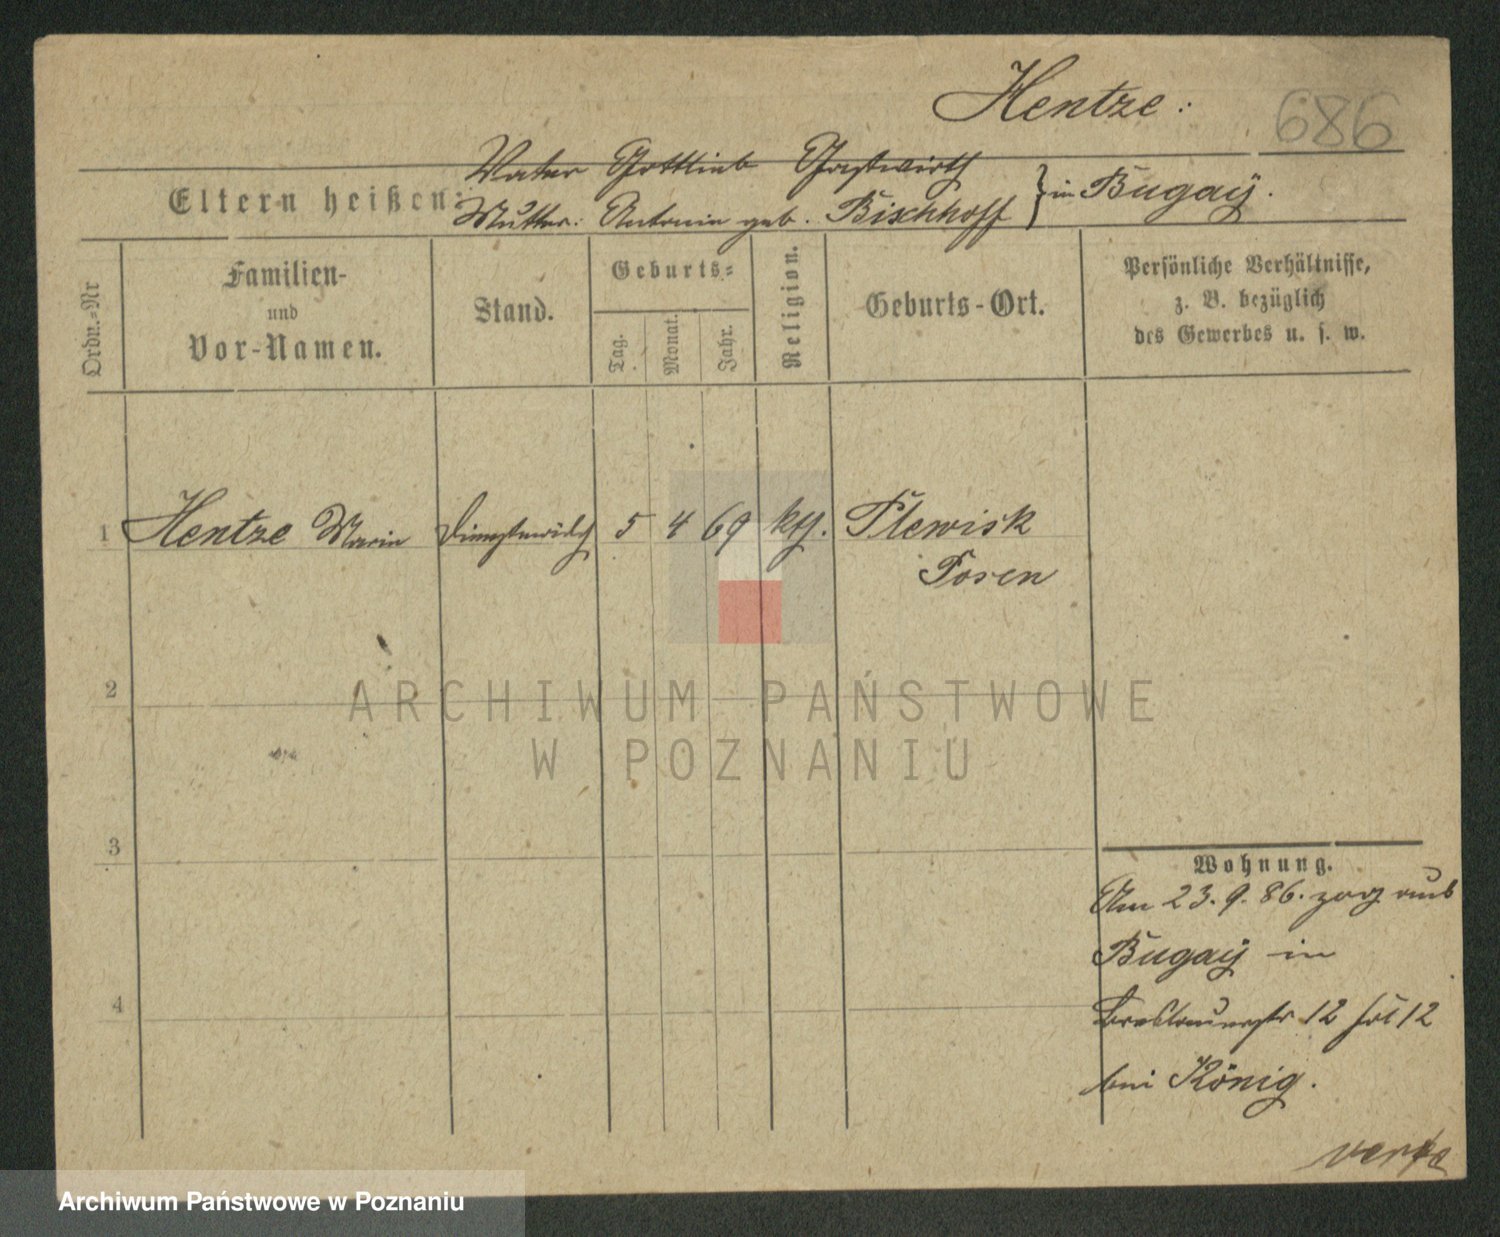 Hentze:
686
Vater Gottlieb Gastwirth
Eltern heißen:
Mutter: Antonie geb. Bischhoff } in Bugaÿ.
Ordn.=Nr
Familien-
und
Vor-Namen.
Stand.
Geburts=
Tag.
Monat.
Jahr.
Religion.
Geburts-Ort.
Persönliche Verhältnisse,
z. B. bezüglich
des Gewerbes u. s. w.
1 Hentze Marie 5 4 69 kth. Plewisk
Posen
2
3
4
Wohnung.
Am 23.9.86. zog aus
Bugaÿ in
Breslauerstr 12 12
bei König.
ARCHIWUM PAŃSTWOWE
W POZNANIU
Archiwum Państwowe w Poznaniu